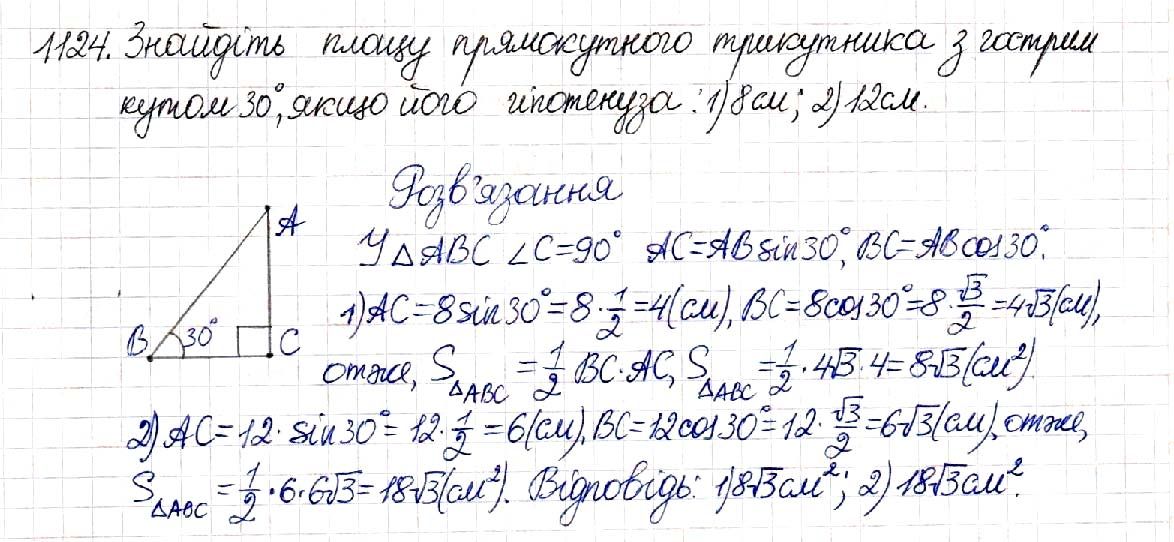 1124. Знайдіть площу прямокутного трикутника з гострим
кутом 30°, якщо його гіпотенуза: 1) 8 см; 2) 12 см.
Розв'язання
A
У △ABC ∠C=90° AC=AB sin30°, BC=AB cos30°.
1) AC=8 sin30°=8·1/2=4(см), BC=8cos30°=8·√3/2=4√3(см),
B 30° C
отже, S△ABC=1/2 BC·AC, S△ABC=1/2·4√3·4=8√3(см²).
2) AC=12·sin30°=12·1/2=6(см), BC=12cos30°=12·√3/2=6√3(см), отже,
S△ABC=1/2·6·6√3=18√3(см²). Відповідь: 1) 8√3 см²; 2) 18√3 см².